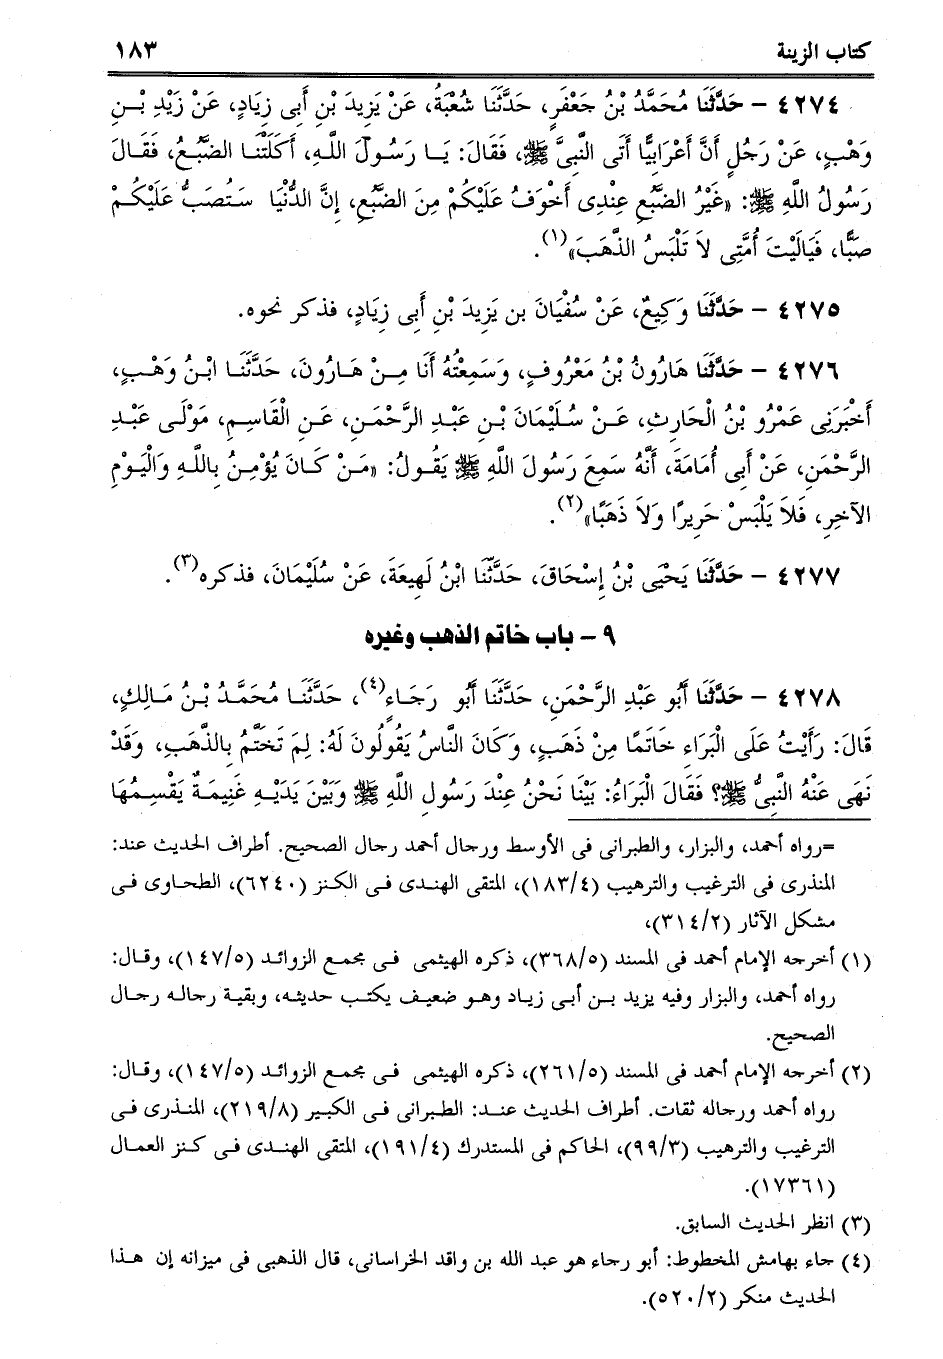 كتاب الزينة ١٨٣
٤٢٧٤ – حَدَّثَنَا مُحَمَّدُ بْنُ جَعْفَرٍ، حَدَّثَنَا شُعْبَةُ، عَنْ يَزِيدَ بْنِ أَبِى زِيَادٍ، عَنْ زَيْدِ بْنِ
وَهْبٍ، عَنْ رَجُلٍ أَنَّ أَعْرَابِيًّا أَتَى النَّبِىَّ ﷺ، فَقَالَ: يَا رَسُولَ اللَّهِ، أَكَلَتْنَا الضَّبُعُ، فَقَالَ
رَسُولُ اللَّهِ ﷺ: «غَيْرُ الضَّبُعِ عِنْدِى أَخْوَفُ عَلَيْكُمْ مِنَ الضَّبُعِ، إِنَّ الدُّنْيَا سَتُصَبُّ عَلَيْكُمْ
صَبًّا، فَيَالَيْتَ أُمَّتِى لاَ تَلْبَسُ الذَّهَبَ»(١).
٤٢٧٥ – حَدَّثَنَا وَكِيعٌ، عَنْ سُفْيَانَ بن يَزِيدَ بْنِ أَبِى زِيَادٍ، فذكر نحوه.
٤٢٧٦ – حَدَّثَنَا هَارُونُ بْنُ مَعْرُوفٍ، وَسَمِعْتُهُ أَنَا مِنْ هَارُونَ، حَدَّثَنَا ابْنُ وَهْبٍ،
أَخْبَرَنِى عَمْرُو بْنُ الْحَارِثِ، عَنْ سُلَيْمَانَ بْنِ عَبْدِ الرَّحْمَنِ، عَنِ الْقَاسِمِ، مَوْلَى عَبْدِ
الرَّحْمَنِ، عَنْ أَبِى أُمَامَةَ، أَنَّهُ سَمِعَ رَسُولَ اللَّهِ ﷺ يَقُولُ: «مَنْ كَانَ يُؤْمِنُ بِاللَّهِ وَالْيَوْمِ
الآخِرِ، فَلاَ يَلْبَسْ حَرِيرًا وَلاَ ذَهَبًا»(٢).
٤٢٧٧ – حَدَّثَنَا يَحْيَى بْنُ إِسْحَاقَ، حَدَّثَنَا ابْنُ لَهِيعَةَ، عَنْ سُلَيْمَانَ، فذكره(٣).
٩ – باب خاتم الذهب وغيره
٤٢٧٨ – حَدَّثَنَا أَبُو عَبْدِ الرَّحْمَنِ، حَدَّثَنَا أَبُو رَجَاءٍ(٤)، حَدَّثَنَا مُحَمَّدُ بْنُ مَالِكٍ،
قَالَ: رَأَيْتُ عَلَى الْبَرَاءِ خَاتَمًا مِنْ ذَهَبٍ، وَكَانَ النَّاسُ يَقُولُونَ لَهُ: لِمَ تَخَتَّمُ بِالذَّهَبِ، وَقَدْ
نَهَى عَنْهُ النَّبِىُّ ﷺ؟ فَقَالَ الْبَرَاءُ: بَيْنَا نَحْنُ عِنْدَ رَسُولِ اللَّهِ ﷺ وَبَيْنَ يَدَيْهِ غَنِيمَةٌ يَقْسِمُهَا
=رواه أحمد، والبزار، والطبرانى فى الأوسط ورجال أحمد رجال الصحيح. أطراف الحديث عند:
المنذرى فى الترغيب والترهيب (١٨٣/٤)، المتقى الهندى فى الكنز (٦٢٤٠)، الطحاوى فى
مشكل الآثار (٣١٤/٢)،
(١) أخرجه الإمام أحمد فى المسند (٣٦٨/٥)، ذكره الهيثمى فى مجمع الزوائد (١٤٧/٥)، وقال:
رواه أحمد، والبزار وفيه يزيد بن أبى زياد وهو ضعيف يكتب حديثه، وبقية رجاله رجال
الصحيح.
(٢) أخرجه الإمام أحمد فى المسند (٢٦١/٥)، ذكره الهيثمى فى مجمع الزوائد (١٤٧/٥)، وقال:
رواه أحمد ورجاله ثقات. أطراف الحديث عند: الطبرانى فى الكبير (٢١٩/٨)، المنذرى فى
الترغيب والترهيب (٩٩/٣)، الحاكم فى المستدرك (١٩١/٤)، المتقى الهندى فى كنز العمال
(١٧٣٦١).
(٣) انظر الحديث السابق.
(٤) جاء بهامش المخطوط: أبو رجاء هو عبد الله بن واقد الخراسانى، قال الذهبى فى ميزانه إن هذا
الحديث منكر (٥٢٠/٢).